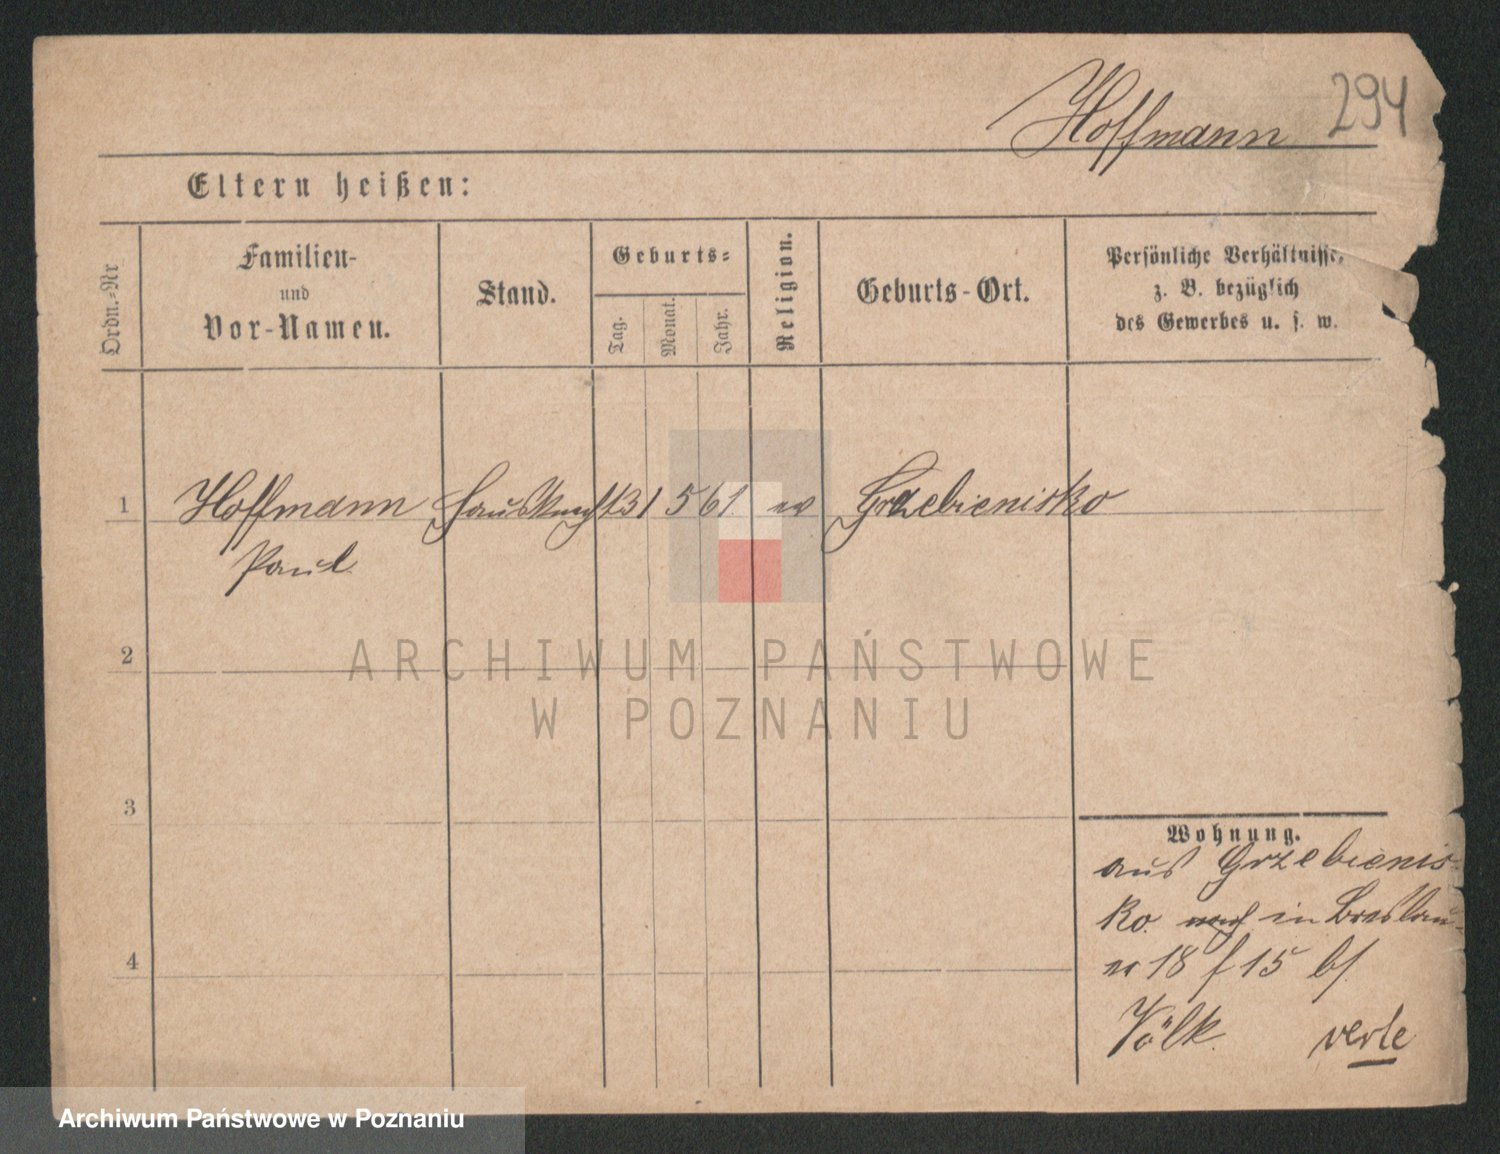 Hoffmann 294
Eltern heißen:
Ordn.-Nr
Familien-
und
Vor-Namen.
Stand.
Geburts-
Tag.
Monat.
Jahr.
Religion.
Geburts-Ort.
Persönliche Verhältnisse,
z. B. bezüglich
des Gewerbes u. s. w.
1 Hoffmann Hausknecht 31 5 61. ev Grzebienisko
Paul
2
3
4
Wohnung.
aus Grzebienis-
ko. nach in Breslau-
er 18 f 15 b/.
Völk. verte
ARCHIWUM PAŃSTWOWE
W POZNANIU
Archiwum Państwowe w Poznaniu